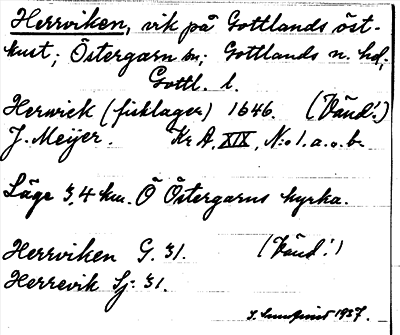 Herrviken, vik på Gottlands öst-
kust; Östergarn sn; Gottlands n. hd;
Gottl. l.
Herwick (fisklager) 1646. (Vänd!)
J. Meijer. Kr A, XIX, N:o 1. a. o. b.
Läge 3,4 km. Ö Östergarns kyrka.
Herrviken G. 31. (Vänd!)
Herrevik Sj. 31.
S. Lundqvist 1937.